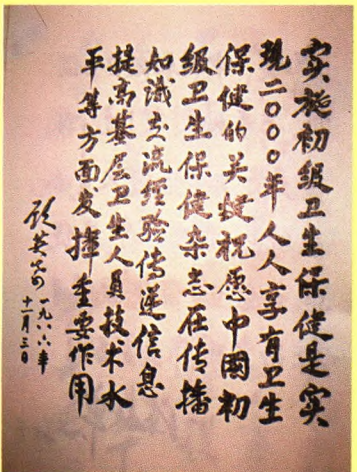 实施初级卫生保健是实
现二〇〇〇年人人享有卫生
保健的关键祝愿中國初
级卫生保健杂志在传播
知識交流经验传递信息
提高基层卫生人员技术水
平等方面发揮重要作用
顾英奇
一九八六年
十一月三日